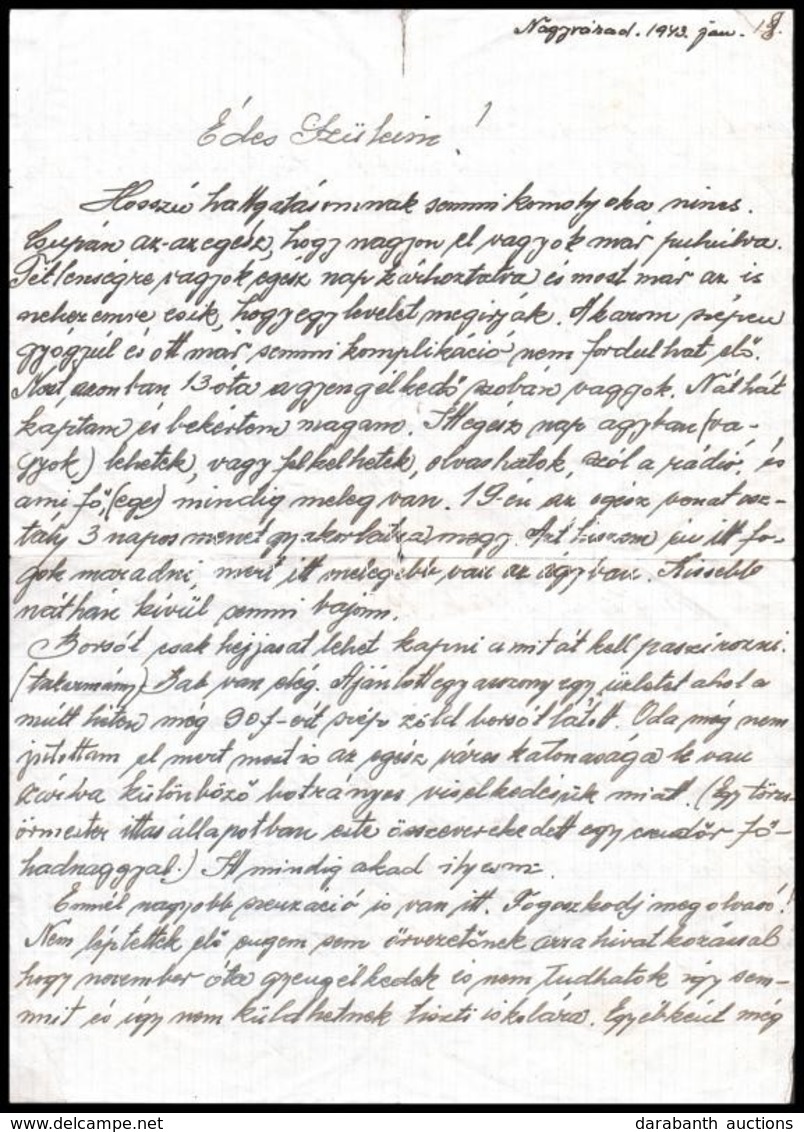 Nagyvárad. 1943. jan. 18.
Édes Szüleim!
Hosszú hallgatásomnak semmi komoly oka nincs.
Csupán az-az egész, hogy nagyon el vagyok már puhulva.
Tétlenségre vagyok egész nap kárhoztatva és most már az is
nehezemre esik, hogy egy levelet megirjak. A karom szépen
gyógyúl és ott már semmi komplikáció nem fordulhat elő.
Most azonban 13-óta a gyengélkedő szobán vagyok. Náthát
kaptam és bekértem magam. Itt egész nap ágyban (va-
gyok) lehetek, vagy felkelhetek, olvashatok, szól a rádió, és
ami fő, (ége) mindig meleg van. 19-én az egész vonat osz-
taly 3 napos menetgyakorlatra megy. Azt hiszem én itt fo-
gok maradni, mert itt melegebb van az ágyban. Kissebb
náthán kívül semmi bajom.
Borsót csak héjjasat lehet kapni amit át kell passzirozni.
(takarmány) Bab van elég. Ajánlott egy asszony egy üzletet ahol a
múlt héten még 90f-ért szép zöld borsót látott. Oda még nem
jutottam el mert most is az egész város katonasága le van
zárva különböző botrányos viselkedésük miatt. (Egy törzs-
örmester ittas állapotban este összeverekedett egy csendőr fő-
hadnaggyal.) Itt mindig akad ilyesmi.
Ennél nagyobb szenzáció is van itt. Fogozkodj meg olvasó!
Nem léptettek elő engem sem őrvezetőnek arra hivatkozással
hogy november óta gyengélkedek és nem tudhatok így sem-
mit és így nem küldhetnek tiszti iskolára. Egyébként még
delcampe.net
darabanth auctions